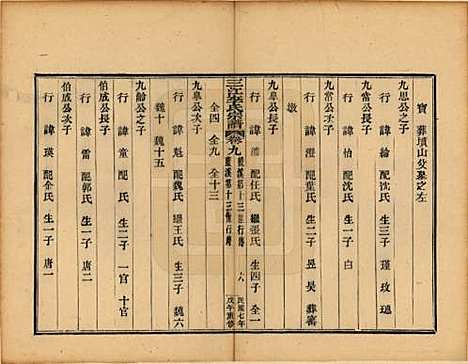 寶 葬墳山父墓之左
九思公之子
行 諱綸 配沈氏 生三子 瑾 玫 璁
九當公長子
行 諱怡 配沈氏 生一子 白
九當公次子
行 諱澄 配葉氏 生二子 昱 昊 葬富
墩
九皋公長子
行 諱 配任氏 繼張氏 生四子 全一
全四 全九 全十三
三江李氏宗譜 卷九 六 民國七年 戊午重修
九皋公次子
行 諱魁 配魏氏 繼王氏 生三子 魏六
魏十 魏十五
九齡公之子
行 諱童 配氏 生二子 一官 十官
伯成公長子
行 諱雷 配郭氏 生一子 唐二
伯成公次子
行 諱瑛 配余氏 生一子 唐一